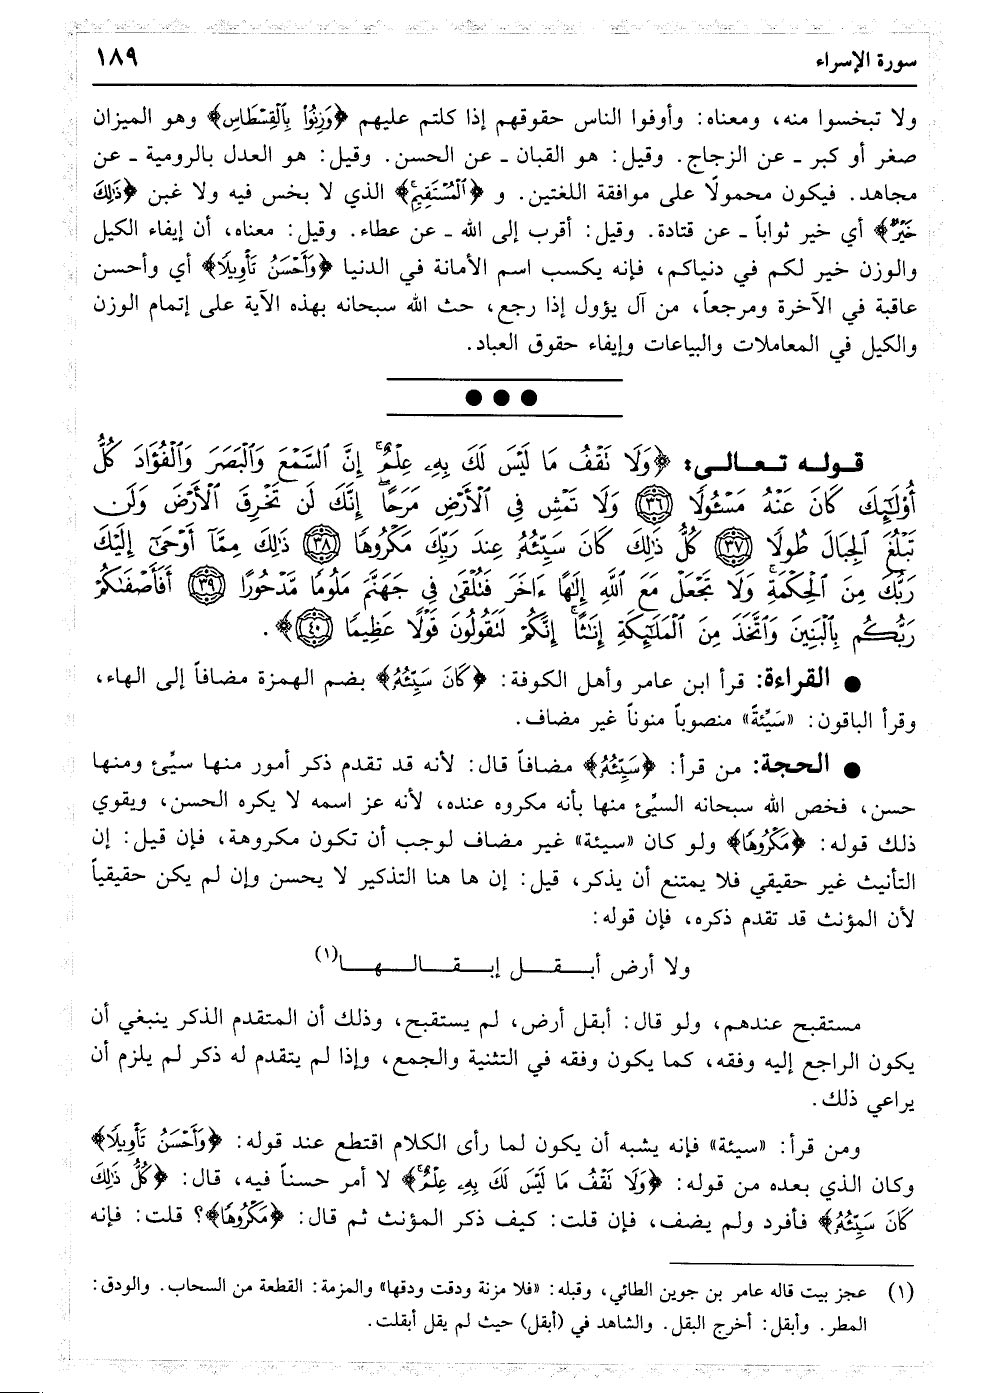 سورة الإسراء
١٨٩
ولا تبخسوا منه، ومعناه: وأوفوا الناس حقوقهم إذا كلتم عليهم ﴿وَزِنُوا۟ بِٱلْقِسْطَاسِ﴾ وهو الميزان
صغر أو كبر ـ عن الزجاج. وقيل: هو القبان ـ عن الحسن. وقيل: هو العدل بالرومية ـ عن
مجاهد. فيكون محمولًا على موافقة اللغتين. و ﴿ٱلْمُسْتَقِيمِۚ﴾ الذي لا بخس فيه ولا غبن ﴿ذَٰلِكَ
خَيْرٌ﴾ أي خير ثواباً ـ عن قتادة. وقيل: أقرب إلى الله ـ عن عطاء. وقيل: معناه، أن إيفاء الكيل
والوزن خير لكم في دنياكم، فإنه يكسب اسم الأمانة في الدنيا ﴿وَأَحْسَنُ تَأْوِيلًا﴾ أي وأحسن
عاقبة في الآخرة ومرجعاً، من آل يؤول إذا رجع، حث الله سبحانه بهذه الآية على إتمام الوزن
والكيل في المعاملات والبياعات وإيفاء حقوق العباد.
قوله تعالى: ﴿وَلَا نَقْفُ مَا لَيْسَ لَكَ بِهِۦ عِلْمٌۚ إِنَّ ٱلسَّمْعَ وَٱلْبَصَرَ وَٱلْفُؤَادَ كُلُّ
أُو۟لَٰٓئِكَ كَانَ عَنْهُ مَسْـُٔولًا ٣٦ وَلَا تَمْشِ فِى ٱلْأَرْضِ مَرَحًاۖ إِنَّكَ لَن تَخْرِقَ ٱلْأَرْضَ وَلَن
تَبْلُغَ ٱلْجِبَالَ طُولًا ٣٧ كُلُّ ذَٰلِكَ كَانَ سَيِّئُهُۥ عِندَ رَبِّكَ مَكْرُوهًا ٣٨ ذَٰلِكَ مِمَّآ أَوْحَىٰٓ إِلَيْكَ
رَبُّكَ مِنَ ٱلْحِكْمَةِۗ وَلَا تَجْعَلْ مَعَ ٱللَّهِ إِلَٰهًا ءَاخَرَ فَتُلْقَىٰ فِى جَهَنَّمَ مَلُومًا مَّدْحُورًا ٣٩ أَفَأَصْفَىٰكُمْ
رَبُّكُم بِٱلْبَنِينَ وَٱتَّخَذَ مِنَ ٱلْمَلَٰٓئِكَةِ إِنَٰثًاۚ إِنَّكُمْ لَتَقُولُونَ قَوْلًا عَظِيمًا ٤٠﴾.
● القراءة: قرأ ابن عامر وأهل الكوفة: ﴿كَانَ سَيِّئُهُ﴾ بضم الهمزة مضافاً إلى الهاء،
وقرأ الباقون: «سَيِّئةً» منصوباً منوناً غير مضاف.
● الحجة: من قرأ: ﴿سَيِّئُهُ﴾ مضافاً قال: لأنه قد تقدم ذكر أمور منها سيِّئ ومنها
حسن، فخص الله سبحانه السيِّئ منها بأنه مكروه عنده، لأنه عز اسمه لا يكره الحسن، ويقوي
ذلك قوله: ﴿مَكْرُوهًا﴾ ولو كان «سيئة» غير مضاف لوجب أن تكون مكروهة، فإن قيل: إن
التأنيث غير حقيقي فلا يمتنع أن يذكر، قيل: إن ها هنا التذكير لا يحسن وإن لم يكن حقيقياً
لأن المؤنث قد تقدم ذكره، فإن قوله:
ولا أرض أبقل إبقالها(١)
مستقبح عندهم، ولو قال: أبقل أرض، لم يستقبح، وذلك أن المتقدم الذكر ينبغي أن
يكون الراجع إليه وفقه، كما يكون وفقه في التثنية والجمع، وإذا لم يتقدم له ذكر لم يلزم أن
يراعي ذلك.
ومن قرأ: «سيئة» فإنه يشبه أن يكون لما رأى الكلام اقتطع عند قوله: ﴿وَأَحْسَنُ تَأْوِيلًا﴾
وكان الذي بعده من قوله: ﴿وَلَا نَقْفُ مَا لَيْسَ لَكَ بِهِۦ عِلْمٌۚ﴾ لا أمر حسناً فيه، قال: ﴿كُلُّ ذَٰلِكَ
كَانَ سَيِّئُهُ﴾ فأفرد ولم يضف، فإن قلت: كيف ذكر المؤنث ثم قال: ﴿مَكْرُوهًا﴾؟ قلت: فإنه
(١) عجز بيت قاله عامر بن جوين الطائي، وقبله: «فلا مزنة ودقت ودقها» والمزمة: القطعة من السحاب. والودق:
المطر. وأبقل: أخرج البقل. والشاهد في (أبقل) حيث لم يقل أبقلت.